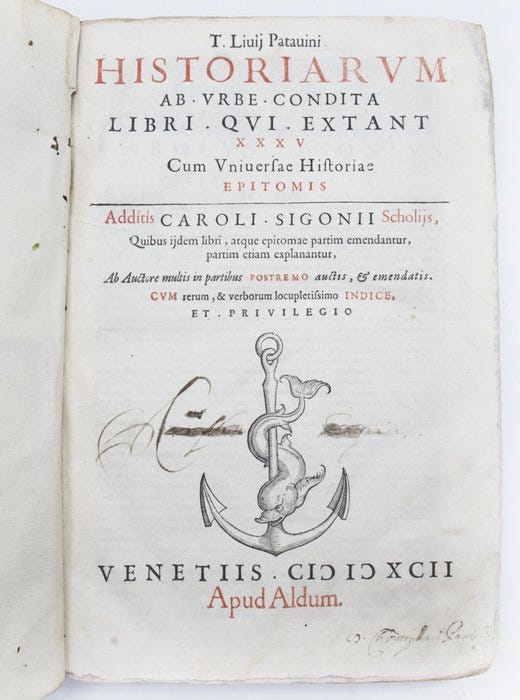 T. Liuij Patauini
HISTORIARVM
AB · VRBE · CONDITA
LIBRI · QVI · EXTANT
XXXV
Cum Vniuersae Historiae
EPITOMIS
Additis CAROLI · SIGONII Scholijs,
Quibus ijdem libri, atque epitomae partim emendantur,
partim etiam explanantur,
Ab Auctore multis in partibus POSTREMO auctis, & emendatis.
CVM rerum, & verborum locupletissimo INDICE,
ET · PRIVILEGIO
VENETIIS · CIↃ IↃ XCII
Apud Aldum.